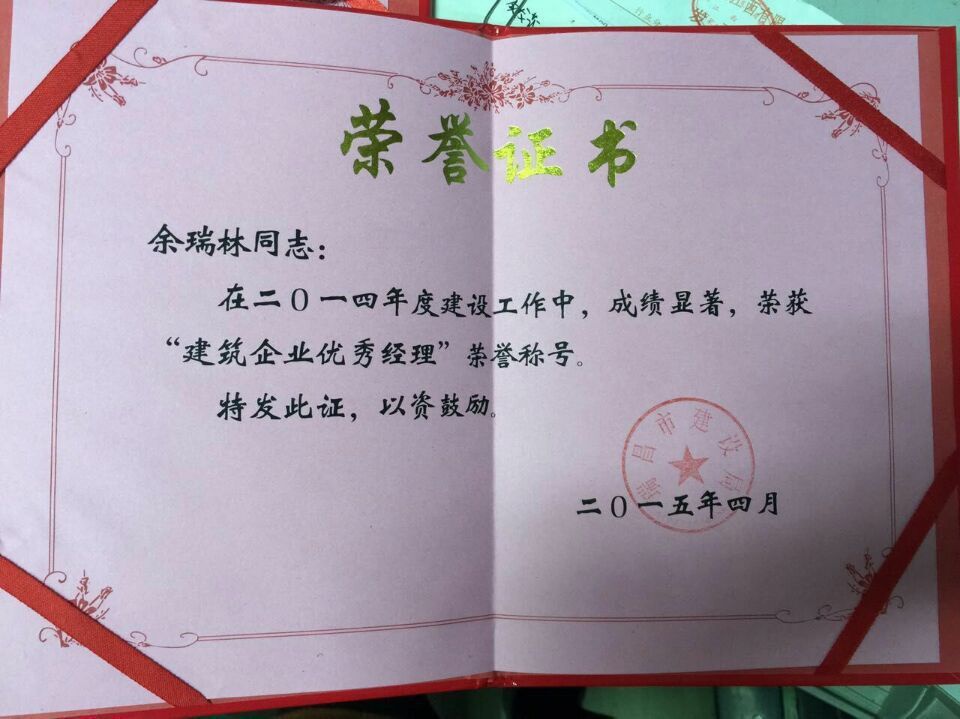 荣誉证书
余瑞林同志：
在二〇一四年度建设工作中，成绩显著，荣获
“建筑企业优秀经理”荣誉称号。
特发此证，以资鼓励。
瑞昌市建设局
二〇一五年四月